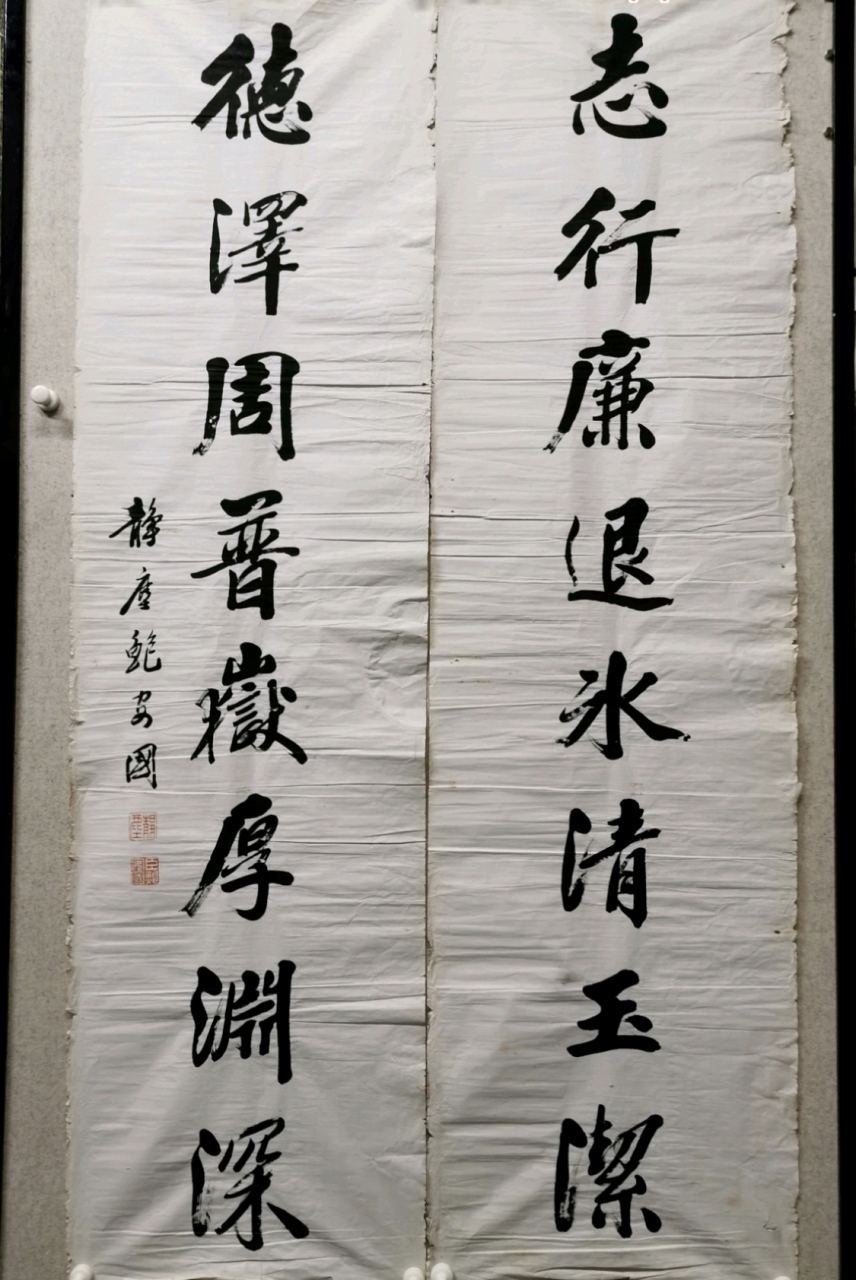 志行廉退冰清玉潔
德澤周普嶽厚淵深
靜塵鮑安國